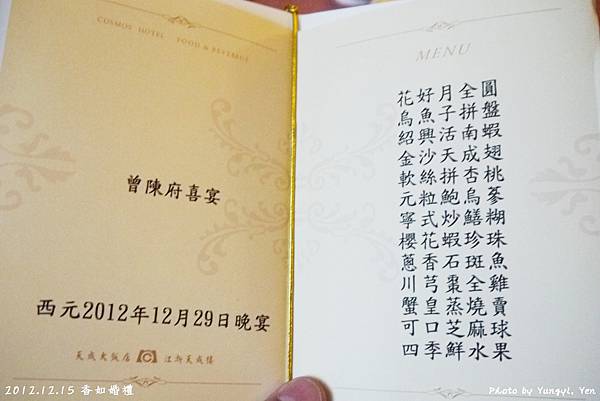 COSMOS HOTEL FOOD & BEVERAGE
曾陳府喜宴
西元2012年12月29日晚宴
天成大飯店 江浙天成樓
MENU
花好月全圓
烏魚子拼盤
紹興活南蝦
金沙天成翅
軟絲拼杏桃
元粒鮑烏蔘
寧式炒鱔糊
櫻花蝦珍珠
蔥香石斑魚
川芎棗全雞
蟹皇蒸燒賣
可口芝麻球
四季鮮水果
2012.12.15 香如婚禮
Photo by Yungyi, Yen